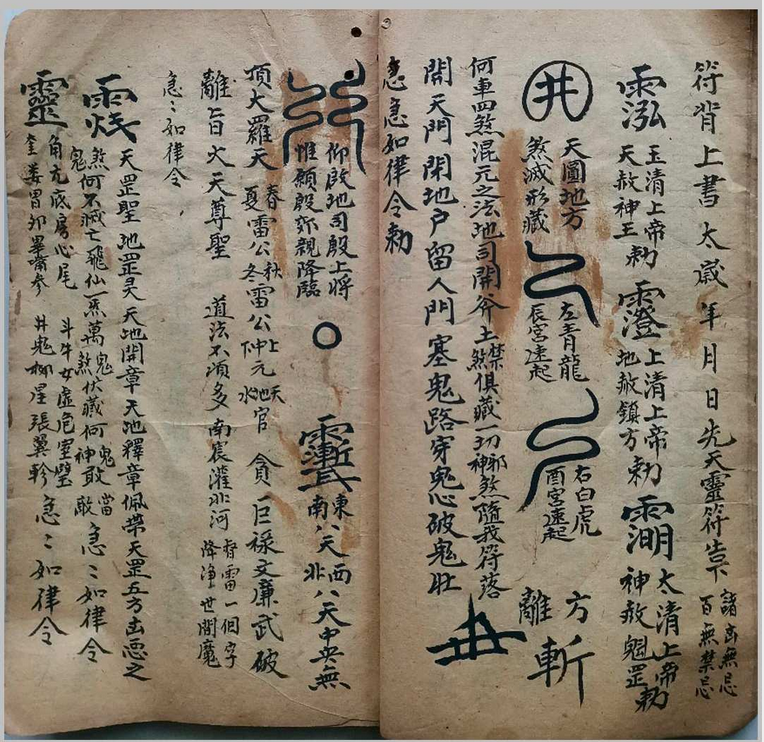 符背上書太歲年月日先天靈符告下
諸凶無忌
百無禁忌
玉清上帝
天赦神王勅
上清上帝
地赦鎮方勅
太清上帝
神赦魁罡勅
井
天圓地方
煞滅形藏
左青龍
辰宮速起
右白虎
酉宮速起
離方
斬
何車四煞混元之法地司開斧土禁煞俱藏一切邪神煞隨我符落
開天門閉地户留人門塞鬼路穿鬼心破鬼肚
急急如律令勅
仰啟地司殷上將
惟願殷郊親降臨
東南八天西北八天中央無
頂大羅天春夏雷公秋冬雷公上仲元天地水官貪巨祿文廉武破
離旨火天尊聖道法不須多南宸灌北河
督雷一個字
降淨世間魔
急〻如律令
天罡聖地罡灵天地開章天地釋章佩帶天罡五方凶惡之
鬼煞何不滅亡飛仙一炁萬鬼煞伏藏何鬼神敢當敵急〻如律令
靈
角亢底房心尾斗牛女虛危室壁
奎婁胃卯畢嘴參井鬼柳星張翼軫
急〻如律令